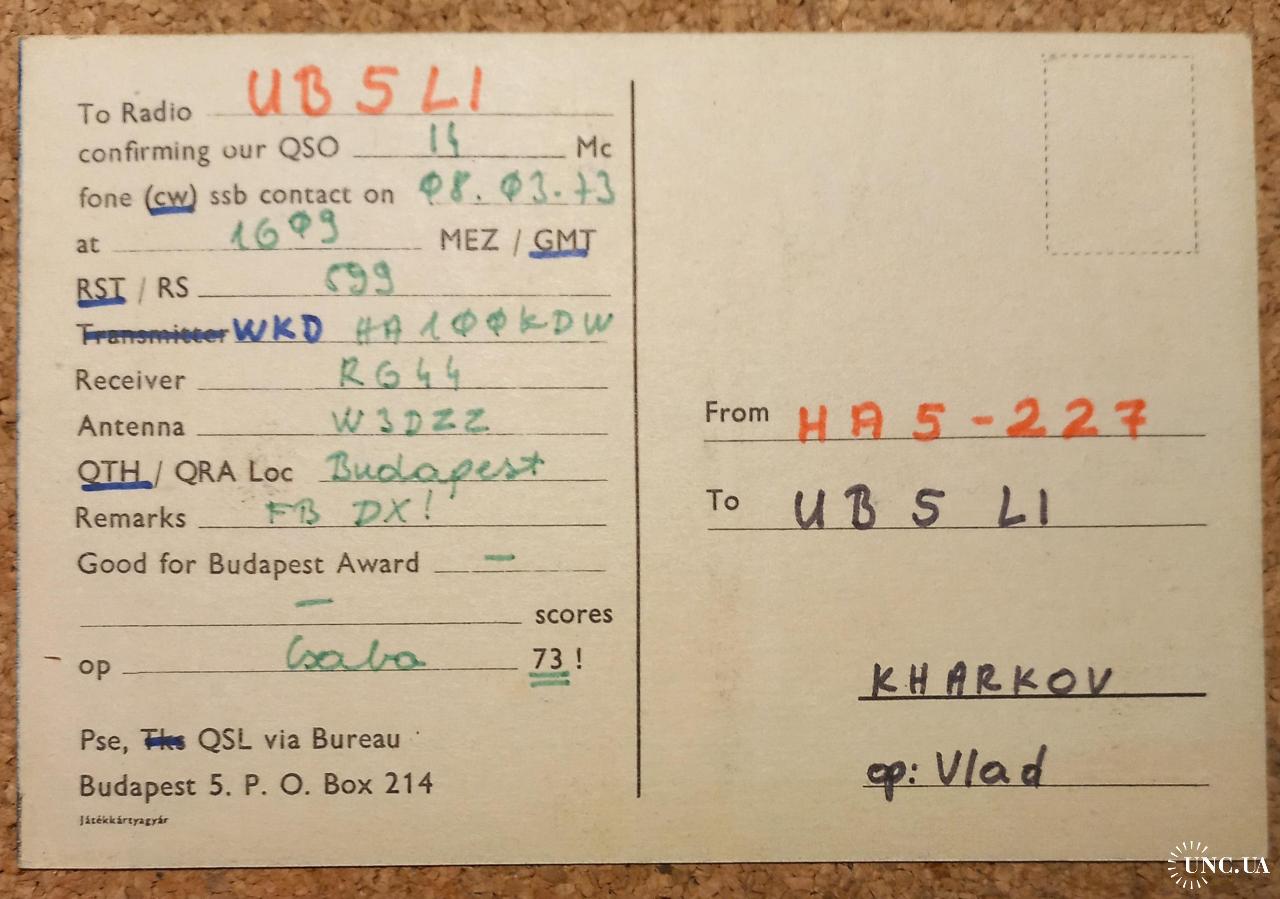 To Radio UB5LI
confirming our QSO 14 Mc
fone (cw) ssb contact on 08.03.73
at 1609 MEZ / GMT
RST / RS 599
Transmitter WKD HA100KDW
Receiver RG44
Antenna W3DZZ
QTH / QRA Loc Budapest
Remarks FB DX!
Good for Budapest Award —
— scores
op Csaba 73!
Pse, Tks QSL via Bureau
Budapest 5. P. O. Box 214
Játékkártyagyár
From HA5-227
To UB5LI
KHARKOV
op: Vlad
UNC.UA